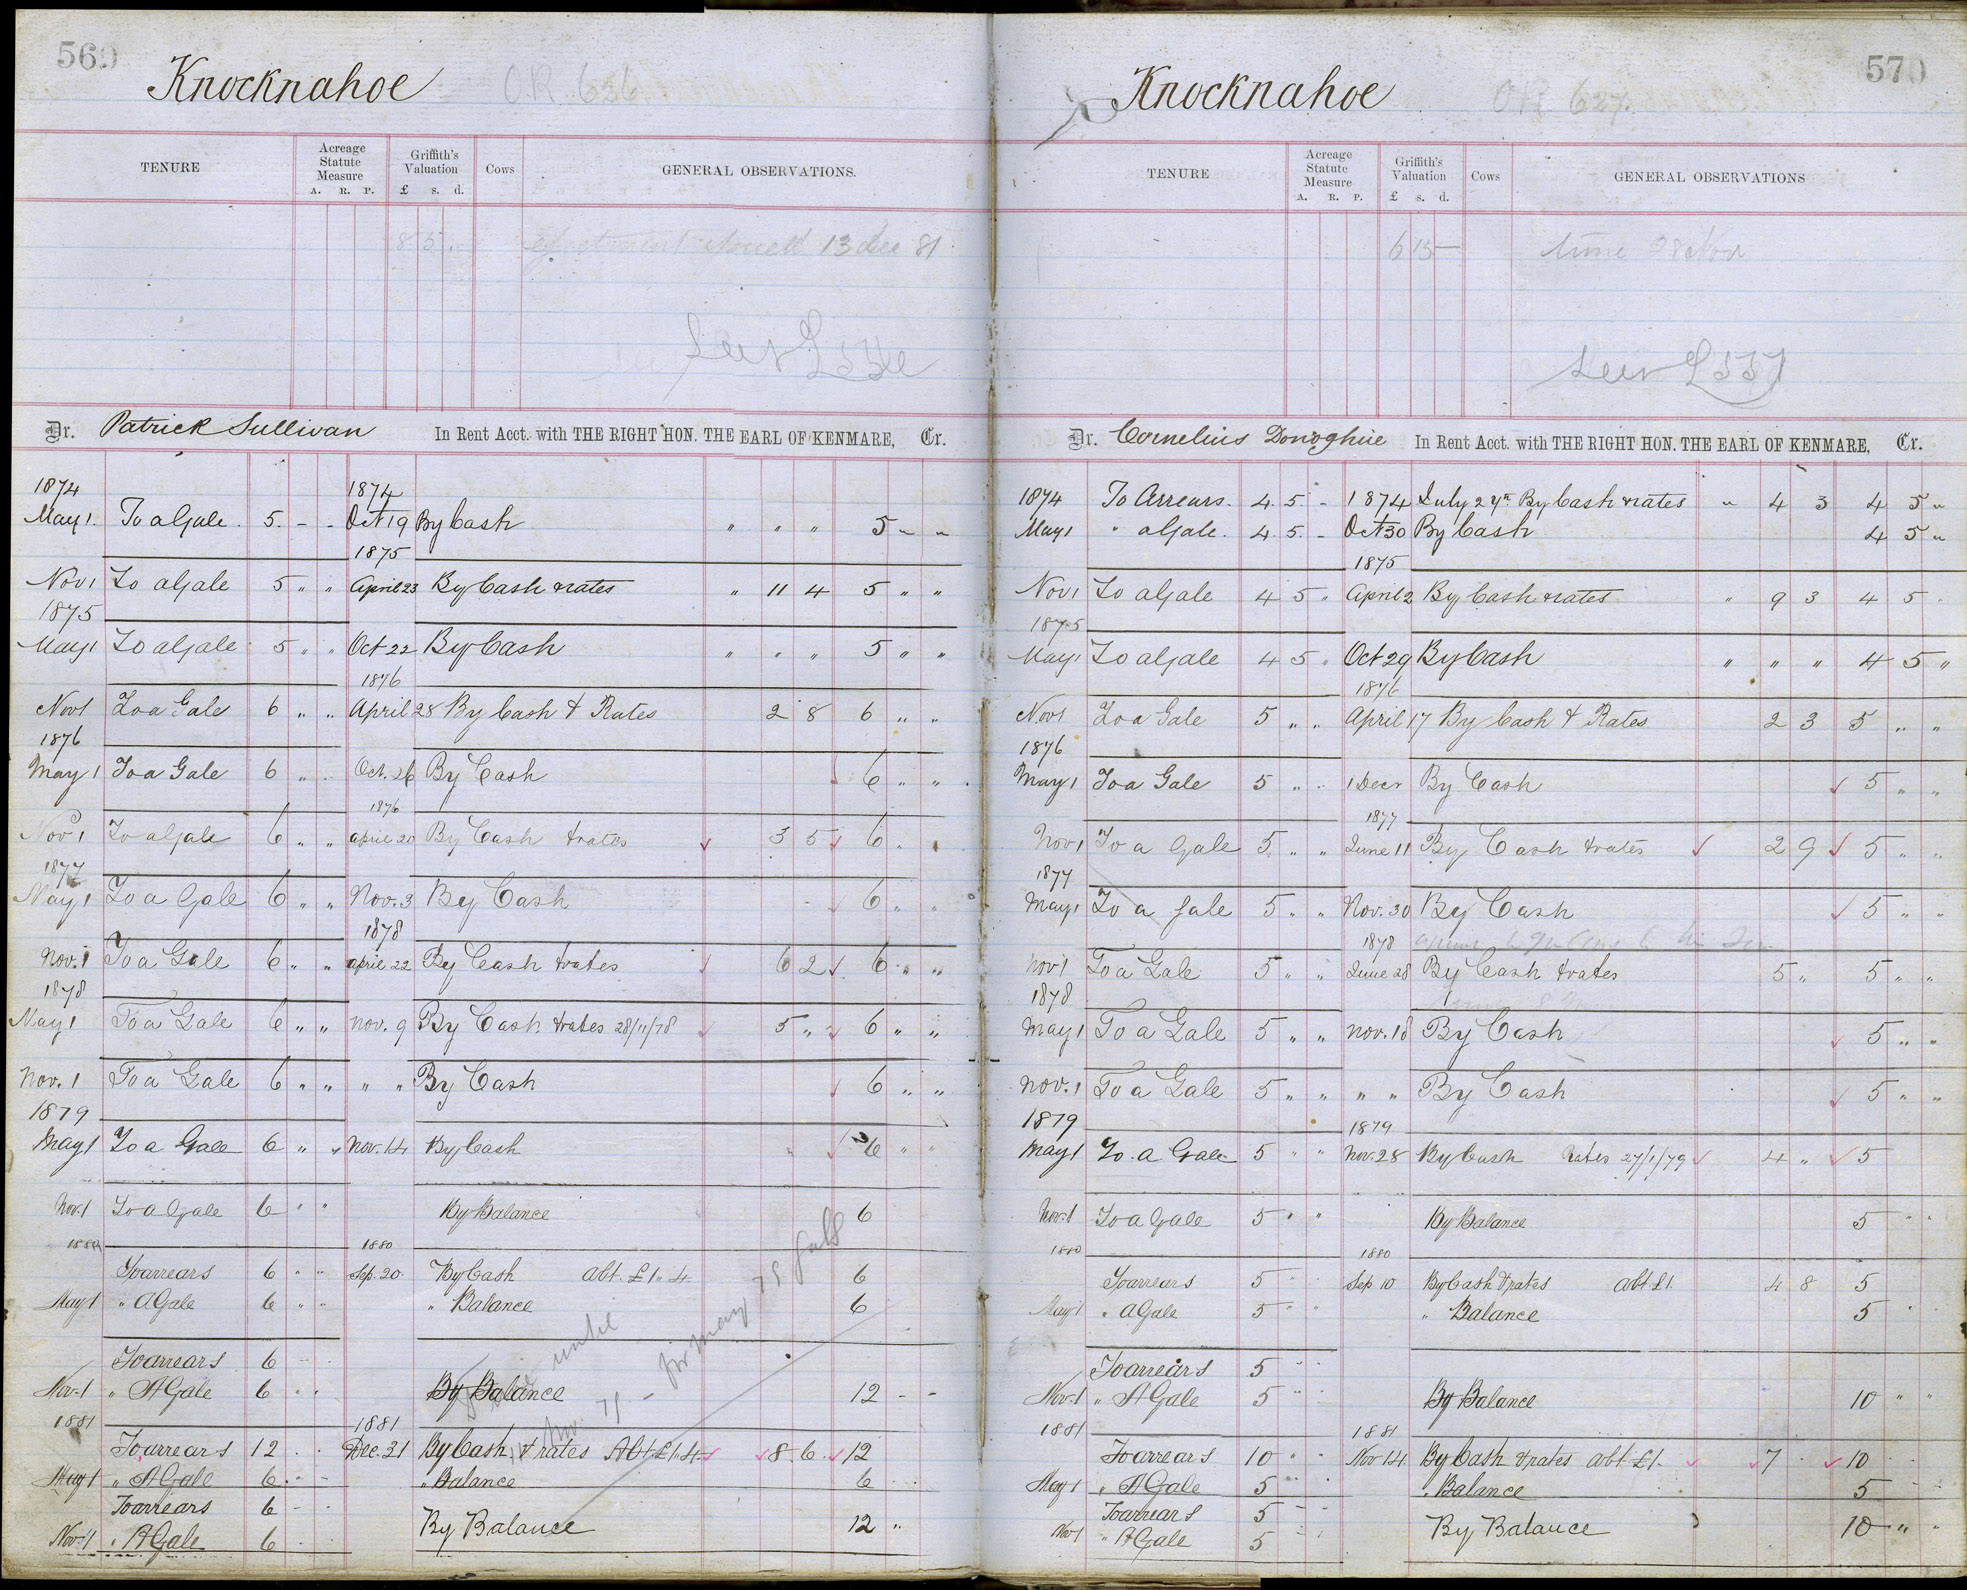 569
Knocknahoe O.R. 626
TENURE
Acreage Statute Measure
A. R. P.
Griffith's Valuation
£ s. d.
Cows
GENERAL OBSERVATIONS.
8 5 ejectment 13 Dec 81
Dr. Patrick Sullivan In Rent Acct. with THE RIGHT HON. THE EARL OF KENMARE, Cr.
1874 1874
May 1. To a Gale. 5. - - Oct 19 By Cash " " " 5 " "
1875
Nov 1 To a Gale 5 " " April 23 By Cash & rates " 11 4 5 " "
1875
May 1 To a Gale 5 " " Oct 22 By Cash " " " 5 " "
1876
Nov 1 To a Gale 6 " " April 28 By Cash & Rates 2 8 6 " "
1876
May 1 To a Gale 6 " . Oct. 26 By Cash 6 " "
1876
Nov 1 To a Gale 6 " " April 20 By Cash & rates 3 5 6 " "
1877
May 1 To a Gale 6 " " Nov. 3 By Cash 6 " "
1878
Nov. 1 To a Gale 6 " " April 22 By Cash & rates 6 2 6 " "
1878
May 1 To a Gale 6 " " Nov. 9 By Cash & rates 28/11/78 5 " 6 " "
Nov. 1 To a Gale 6 " " " " By Cash 6 " "
1879
May 1 To a Gale 6 " " Nov. 14 By Cash 6 " "
Nov. 1 To a Gale 6 " " By Balance 6
1880 1880
To arrears 6 " " Sep. 20. By Cash Abt. £1. 4. 6
May 1 " A Gale 6 " " " Balance 6
To arrears 6 - -
Nov. 1 " A Gale 6 " " By Balance 12 - -
1881 1881
To arrears 12 . . Dec. 31 By Cash & rates Abt £1. 4. 8. 6. 12
May 1 " A Gale 6 . - " Balance 6
To arrears 6 - -
Nov. 1 " A Gale 6 By Balance 12 "
until
for May 78 Gale
570
Knocknahoe O.R. 627.
TENURE
Acreage Statute Measure
A. R. P.
Griffith's Valuation
£ s. d.
Cows
GENERAL OBSERVATIONS
6 15 - time 28 Nov
Dr. Cornelius Donoghue In Rent Acct. with THE RIGHT HON. THE EARL OF KENMARE, Cr.
1874 To Arrears. 4. 5. - 1874 July 24th By Cash & rates " 4 3 4 5 "
May 1 " a Gale. 4. 5. - Oct 30 By Cash 4 5 "
1875
Nov 1 To a Gale 4 5 " April 2 By Cash & rates " 9 3 4 5 "
1875
May 1 To a Gale 4 5 " Oct 29 By Cash " " " 4 5 "
1876
Nov 1 To a Gale 5 " " April 17 By Cash & Rates 2 3 5 " "
1876
May 1 To a Gale 5 " " 1 Decr By Cash 5 " "
1877
Nov 1 To a Gale 5 " " June 11 By Cash & rates 2 9 5 " "
1877
May 1 To a Gale 5 " " Nov. 30 By Cash 5 " "
1878
Nov 1 To a Gale 5 " " June 28 By Cash & rates 5 " 5 " "
1878
May 1 To a Gale 5 " " Nov. 18 By Cash 5 " "
Nov. 1 To a Gale 5 " " " " By Cash 5 " "
1879 1879
May 1 To a Gale 5 " " Nov. 28 By Cash Rates 27/1/79 4 " 5
Nov. 1 To a Gale 5 " " By Balance 5 " "
1880 1880
To arrears 5 " " Sep 10 By Cash & rates Abt £1. 4 8 5
May 1 " A Gale 5 " " " Balance 5 "
To arrears 5 " "
Nov. 1 " A Gale 5 " " By Balance 10 " "
1881 1881
To arrears 10 " " Nov 14. By Cash & rates Abt. £1. 7 10
May 1 " A Gale 5 " " " Balance 5
To arrears 5 - -
Nov 1 " A Gale 5 By Balance 10 " "